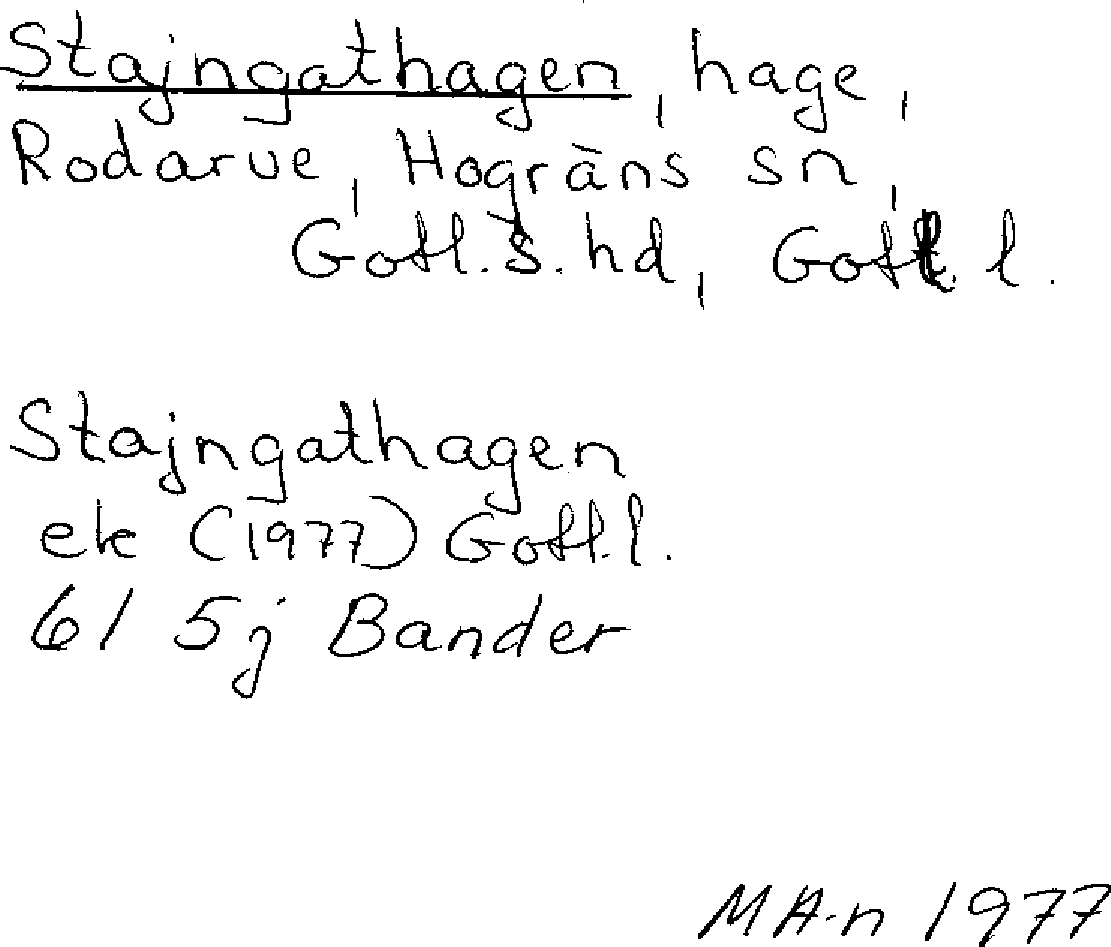 Stajngathagen, hage,
Rodarve, Hogräns sn,
Gotl. S. hd, Gotl. l.
Stajngathagen
ek (1977) Gotl. l.
6I 5j Bander
MA-n 1977